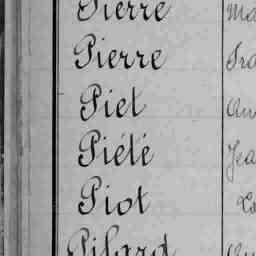 Pierre Ma
Pierre
Piet
Piété Jea
Piot
Pilard